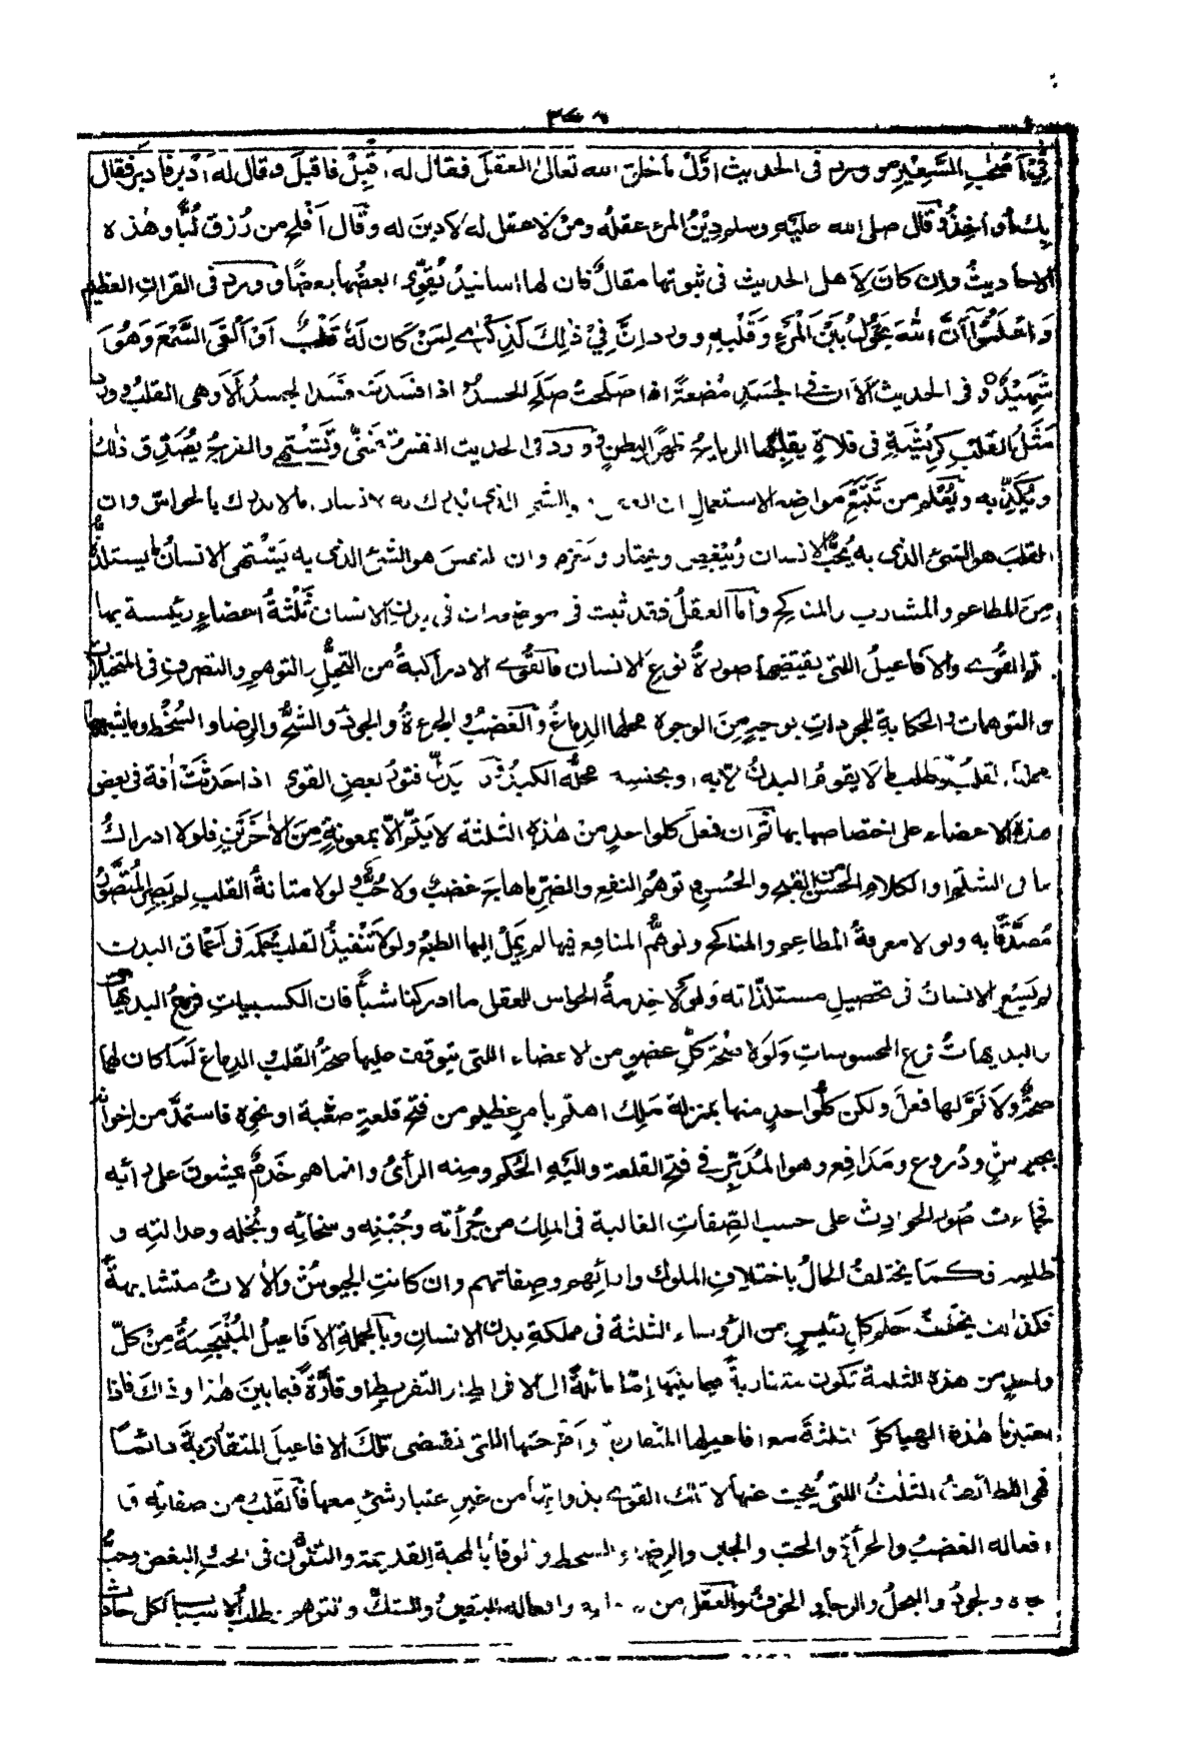 ٣٧٦
فِيْ اَصْحٰبِ السَّعِيْرِ وورد فى الحديث اوَّلُ ماخلق الله تعالى العقلَ فقال له اَقْبِلْ فاقبلَ وقال له اَدْبِر فادبر فقال
بك اُواخِذُ وقال صلى الله عليه وسلم دِيْنُ المرءِ عقلُه ومنْ لا عقل له لا دينَ له وقال اَفلح من رُزق لُبًّا وهٰذه
الاحاديثُ وان كانَ لاهل الحديث فى ثبوتها مقالٌ فان لها اسانيدُ يُقوِّى بعضُها بعضًا وورد فى القران العظيم
وَاعْلَمُوْآ اَنَّ اللهَ يَحُوْلُ بَيْنَ الْمَرْءِ وَقَلْبِهٖ وورد اِنَّ فِيْ ذٰلِكَ لَذِكْرٰى لِمَنْ كَانَ لَهٗ قَلْبٌ اَوْ اَلْقَى السَّمْعَ وَهُوَ
شَهِيْدٌ وفى الحديث اَلا ان فى الجسَدِ مُضغةً اذا صلَحتْ صلَح الجسدُ واذا فسَدت فسَد الجسدُ اَلَا وهى القلبُ وورد
مَثَلُ القلب كرِيْشَةٍ فى فلاةٍ يقلِّبُها الرياحُ ظهرًا لبطنٍ ووَرَد فى الحديث النفسُ تتمنّٰى وتَشْتهى والفرجُ يُصَدِّق ذٰلك
ويُكَذِّبه ويُعْلَم من تَتَبُّعِ مَواضع الاستعمال ان العقل هو الشئ الذى يُدرك به الانسان مالا يدرك بالحواسّ وان
القلب هو الشئ الذى به يُحِبُّ الانسان ويُبْغِض ويختار ويعزم وان النفس هو الشئ الذى به يَشْتهى الانسانُ ما يستلذُّه
مِنَ المطاعم والمشارب والمناكح وأمّا العقلُ فقد ثبت فى موضعه ان فى بدن الانسان ثَلٰثةُ اعضاءٍ رئيسة بها
تتم القُوٰى والافاعيلُ التى يقتضيها صورةُ نوعِ الانسان فالقُوٰى الادراكيةُ من التخيُّلِ والتوهمِ والتصرفِ فى المتخيلات
والمتوهمات والحكايةِ للمجرداتِ بوجهٍ مِنَ الوجوه محلها الدِماغُ والغضبُ والجرءةُ والجودُ والشُّحُّ والرضا والسُخْطُ وما يشبهها
محلها القلبُ وطلب ما لا يقوم البدنُ الا به او بجنسه محلُّه الكبدُ وقد يَدُلُّ فتورُ بعضِ القوى اذا حَدَثَتْ اٰفة فى بعض
هذهِ الاعضاء على اختصاصها بها ثم ان فعلَ كل واحدٍ منْ هٰذهِ الثلثة لا يَتُمُّ الّا بمعونةٍ مِنَ الْاٰخرَيْنِ فلولا ادراكُ
ما فى الشتْمِ او الكلامِ الحسَنِ من القبحِ والحُسْنِ وتوهُّمُ النفعِ والضرِّ ما هاج غضبٌ ولا حُبٌّ ولولا متانةُ القلبِ لم يَصِرِ المُتَصَوَّرُ
مُصَدَّقًا به ولولا معرفةُ المطاعمِ والمناكح وتوهُّمُ المنافعِ فيها لم يَمِلْ اليها الطبعُ ولولا تَنْفيذُ القلب حكمَه فى اَعْماق البدن
لم يَسْعَ الانسانُ فى تحصيلِ مستلذّاته ولولا خِدمةُ الحواس للعقل ما ادركنا شيئًا فان الكسبيات فرعُ البديهيات
والبديهيّاتُ فرع المحسوسات ولولا صحّةُ كلِّ عضوٍ من الاعضاء اللتى يتوقف عليها صحةُ القلب والدِماغ لَمَا كان لهما
صحةٌ ولا تَمَّ لهما فعلٌ ولكن كلُّ واحدٍ منها بمنزلة مَلِك اهتم بامرٍ عظيمٍ من فتح قلعةٍ صَعْبة او نحوِه فاستمدَّ من اِخوانه
بجيوشٍ ودُروعٍ ومَدَافِع وهو المُدَبِّرُ فى فتح القلعة واليهِ الحُكم ومنه الرأىُ وانما هم خَدَمٌ يمشونَ على رأيه
فجاءت صُورُ الحوادِث على حسب الصِّفاتِ الغالبة فى الملِك من جُرْأته وجُبْنِه وسخائه وبُخله وعدالتِه و
ظلمِه فكمَا يختلفُ الحالُ باختلافِ الملوك واٰرائِهم وصِفاتهم وان كانتِ الجيوشُ والاٰلاتُ متشابهةً
فكذٰلك يختلف حكم كلِّ رئيسٍ من الرُّوساء الثلثة فى مملكةِ بدن الانسانِ وبالجملةِ الافاعيلُ المُنْبَجِسةُ مِنْ كلّ
واحدٍ من هذه الثلثة تكون متقاربةً فيما بينها اِمّا مائلةً الى الافراطِ او التفريطِ او قارَّةً فيما بينَ هٰذا وذاكَ فاذا
اعتبرنا هٰذه الهياكلَ الثلثةَ مع افاعيلها المتقاربة وامْزِجتِها اللتى تقتضى تلكَ الافاعيلَ المتقارَبةَ دائمًا
فهى اللطائفُ الثلٰثُ اللتى يُبحث عنها لا تلك القوٰى بذواتِها من غيرِ اعتبار شئٍ معها فالقلبُ من صفاتِه و
افعاله الغضبُ والجرأةُ والحبّ والجبن والرِضاءُ والسخط والوفاءُ بالمحبة القديمة والتلوُّن فى الحبِّ والبغض وحبُّ
الجاه والجودُ والبخلُ والرجاء والخوفُ والعقل من صفاته وافعاله اليقينُ والشكُّ والتوهم وطلبُ الاسباب لكل حادث